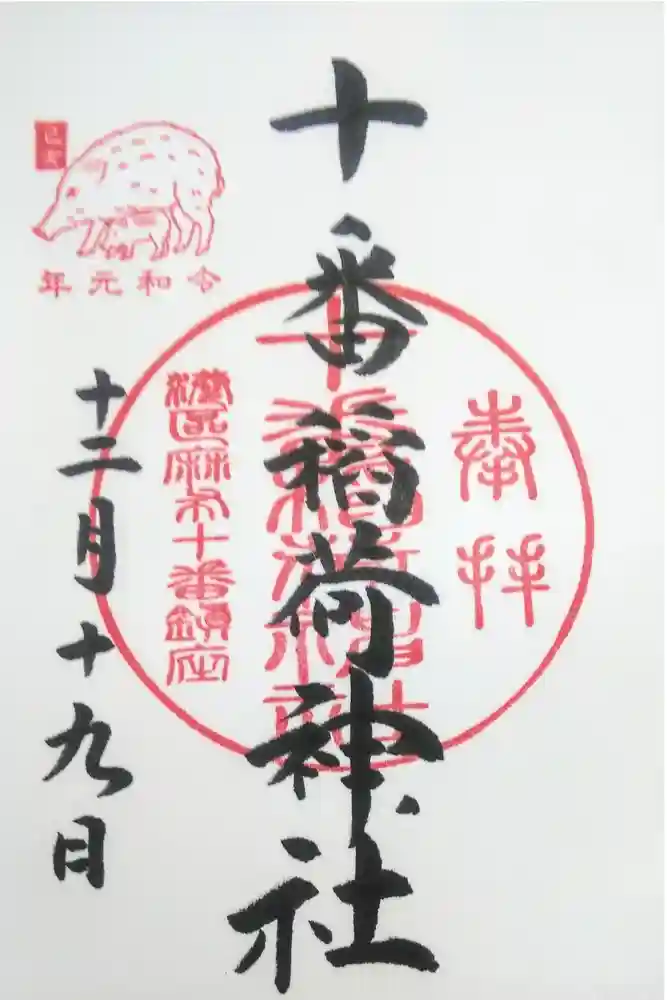 奉拝
十番稲荷神社
十番稲荷神社
港区麻布十番鎮座
己亥
令和元年
十二月十九日